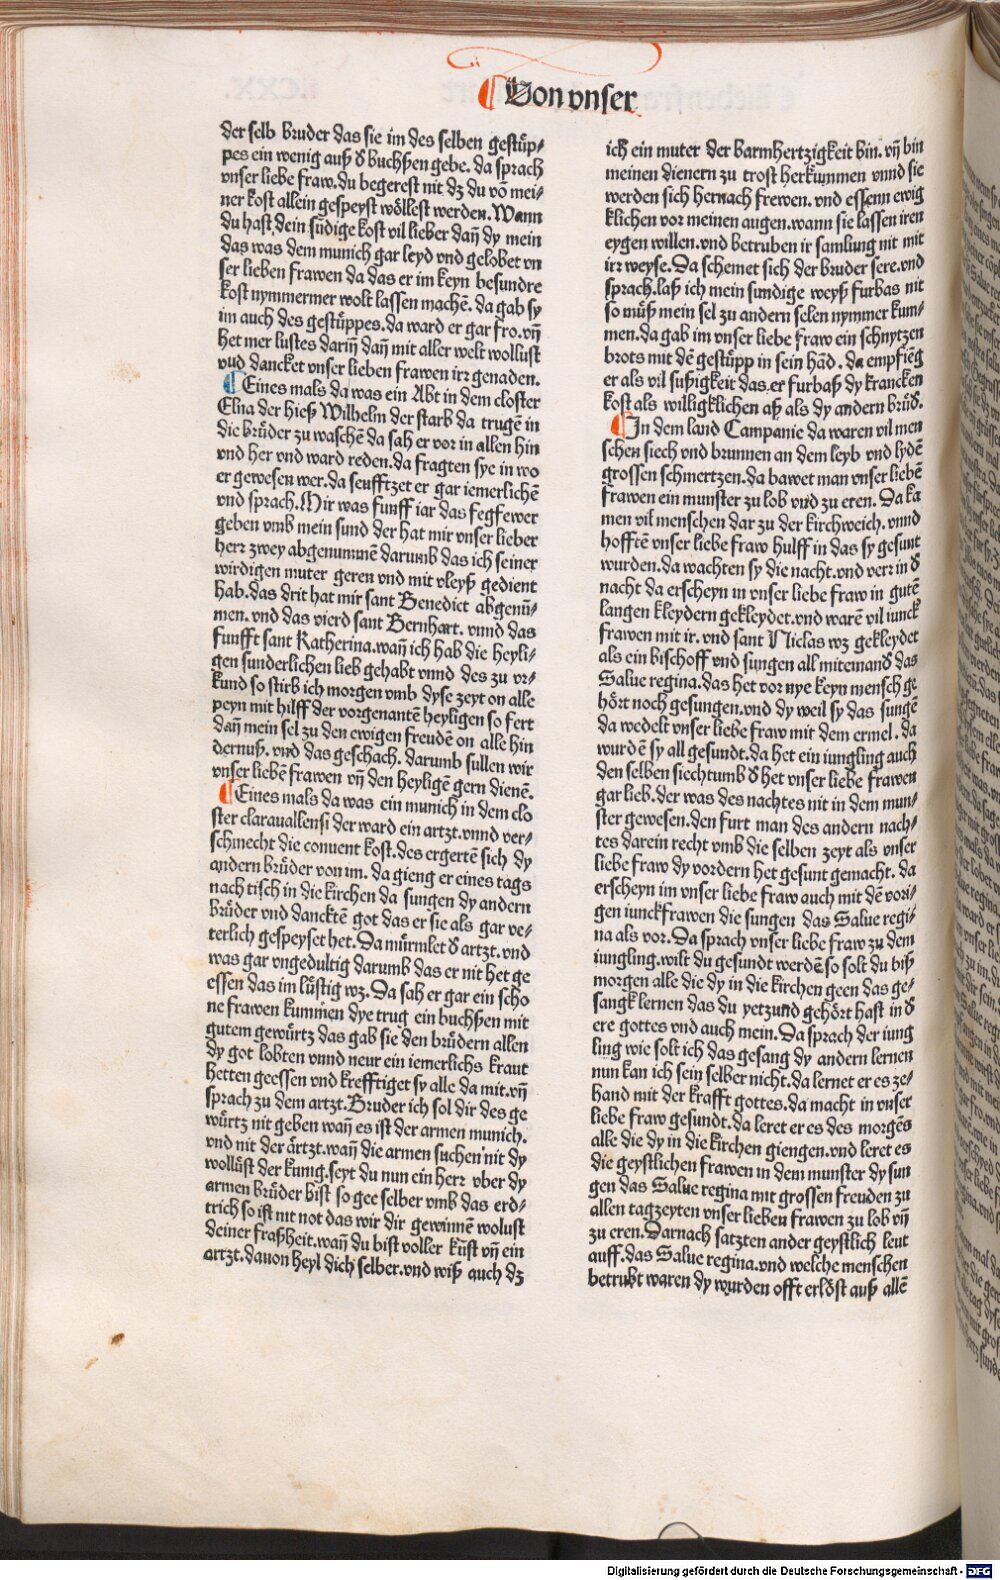 ¶ Von vnser
der selb bruder das sie im des selben gestüp⸗
pes ein wenig auß d̕ buchßen gebe. da sprach
vnser liebe fraw. du begerest nit dz du võ mei⸗
ner kost allein gespeyst wöllest werden. Wann
du hast dein südige kost vil lieber dañ dy mein
das was dem munich gar leyd vnd gelobet vn
ser lieben frawen da das er im keyn besundre
kost nymmermer wolt lassen machē. da gab sy
im auch des gestüppes. da ward er gar fro. vñ
het mer lustes dariñ dañ mit aller welt wollust
vnd dancket vnser lieben frawen irz genaden.
¶ Eines mals da was ein Abt in dem closter
Elna der hieß Wilhelm der starb da trugē in
die brüder zu waschē da sah er vor in allen hin
vnd her vnd ward reden. da fragten sye in wo
er gewesen wer. da seufftzet er gar iemerlichē
vnd sprach. Mir was funff iar das fegfewer
geben vmb mein sund der hat mir vnser lieber
herz zwey abgenummē darumb das ich seiner
wirdigen muter geren vnd mit vleyß gedient
hab. das drit hat mir sant Benedict abgenū⸗
men. vnd das vierd sant Bernhart. vnnd das
funfft sant Katherina. wañ ich hab die heyli⸗
gen sunderlichen lieb gehabt vnnd des zu vr⸗
kund so stirb ich morgen vmb dyse zeyt on alle
peyn mit hilff der vorgenantē heyligen so fert
dañ mein sel zu den ewigen freudē on alle hin
dernuß. vnd das geschach. darumb sullen wir
vnser liebē frawen vñ den heyligē gern dienē.
¶ Eines mals da was ein munich in dem clo
ster clarauallensi der ward ein artzt. vnnd ver⸗
schmecht die conuent kost. des ergertē sich dy
andern brüder von im. da gieng er eines tags
nach tisch in die kirchen da sungen dy andern
brüder vnd dancktē got das er sie als gar ve⸗
terlich gespeyset het. Da mürmlet d̕ artzt. vnd
was gar vngedultig darumb das er nit het ge
essen das im lüstig wz. Da sah er gar ein scho
ne frawen kummen dye trug ein buchßen mit
gutem gewürtz das gab sie den brüdern allen
dy got lobten vnnd neur ein iemerlichs kraut
hetten geessen vnd krefftiget sy alle da mit. vñ
sprach zu dem artzt. Bruder ich sol dir des ge
würtz nit geben wañ es ist der armen munich.
vnd nit der ärtzt. wañ die armen suchen nit dy
wollüst der kunig. seyt du nun ein herz vber dy
armen brüder bist so gee selber vmb das erd⸗
trich so ist nit not das wir dir gewinnē wolust
deiner fraßheit. wañ du bist voller kũst vñ ein
artzt. dauon heyl dich selber. vnd wiß auch dz
ich ein muter der barmhertzigkeit bin. vñ bin
meinen dienern zu trost herkummen vnnd sie
werden sich hernach frewen. vnd essenn ewig
klichen vor meinen augen. wann sie lassen iren
eygen willen. vnd betruben ir samlung nit mit
irz weyse. Da schemet sich der bruder sere. vnd
sprach. laß ich mein sundige weyß furbas nit
so müß mein sel zu andern selen nymmer kum⸗
men. da gab im vnser liebe fraw ein schnytzen
brots mit dē gestüpp in sein hãd. da empfieng
er als vil sußigkeit das er furbaß dy krancken
kost als willigklichen aß als dy andern brüd̕.
¶ In dem land Campanie da waren vil men
schen siech vnd brunnen an dem leyb vnd lydē
grossen schmertzen. da bawet man vnser liebē
frawen ein munster zu lob vnd zu eren. Da ka
men vil menschen dar zu der kirchweich. vnnd
hofftē vnser liebe fraw hulff in das sy gesunt
wurden. da wachten sy die nacht. vnd verz in d̕
nacht da erscheyn in vnser liebe fraw in gutē
langen kleydern gekleydet. vnd warē vil iunck
frawen mit ir. vnd sant Niclas wz gekleydet
als ein bischoff vnd sungen all mitemand̕ das
Salue regina. das het vor nye keyn mensch ge
hört noch gesungen. vnd dy weil sy das sungē
da wedelt vnser liebe fraw mit dem ermel. da
wurdē sy all gesundt. da het ein iungling auch
den selben siechtumb d̕ het vnser liebe frawen
gar lieb. der was des nachtes nit in dem mun⸗
ster gewesen. den furt man des andern nach⸗
tes darein recht vmb die selben zeyt als vnser
liebe fraw dy vordern het gesunt gemacht. da
erscheyn im vnser liebe fraw auch mit dē vori⸗
gen iunckfrawen die sungen das Salue regi⸗
na als vor. Da sprach vnser liebe fraw zu dem
iungling. wilt du gesundt werdē so solt du biß
morgen alle die dy in die kirchen geen das ge⸗
sangk lernen das du yetzund gehört hast in d̕
ere gottes vnd auch mein. Da sprach der iung
ling wie solt ich das gesang dy andern lernen
nun kan ich sein selber nicht. da lernet er es ze⸗
hand mit der krafft gottes. da macht in vnser
liebe fraw gesundt. da leret er es des morgēs
alle die dy in die kirchen giengen. vnd leret es
die geystlichen frawen in dem munster dy sun
gen das Salue regina mit grossen freuden zu
allen tagzeyten vnser lieben frawen zu lob vñ
zu eren. Darnach satzten ander geystlich leut
auff. das Salue regina. vnd welche menschen
betrubt waren dy wurden offt erlöst auß allē
Digitalisierung gefördert durch die Deutsche Forschungsgemeinschaft - DFG